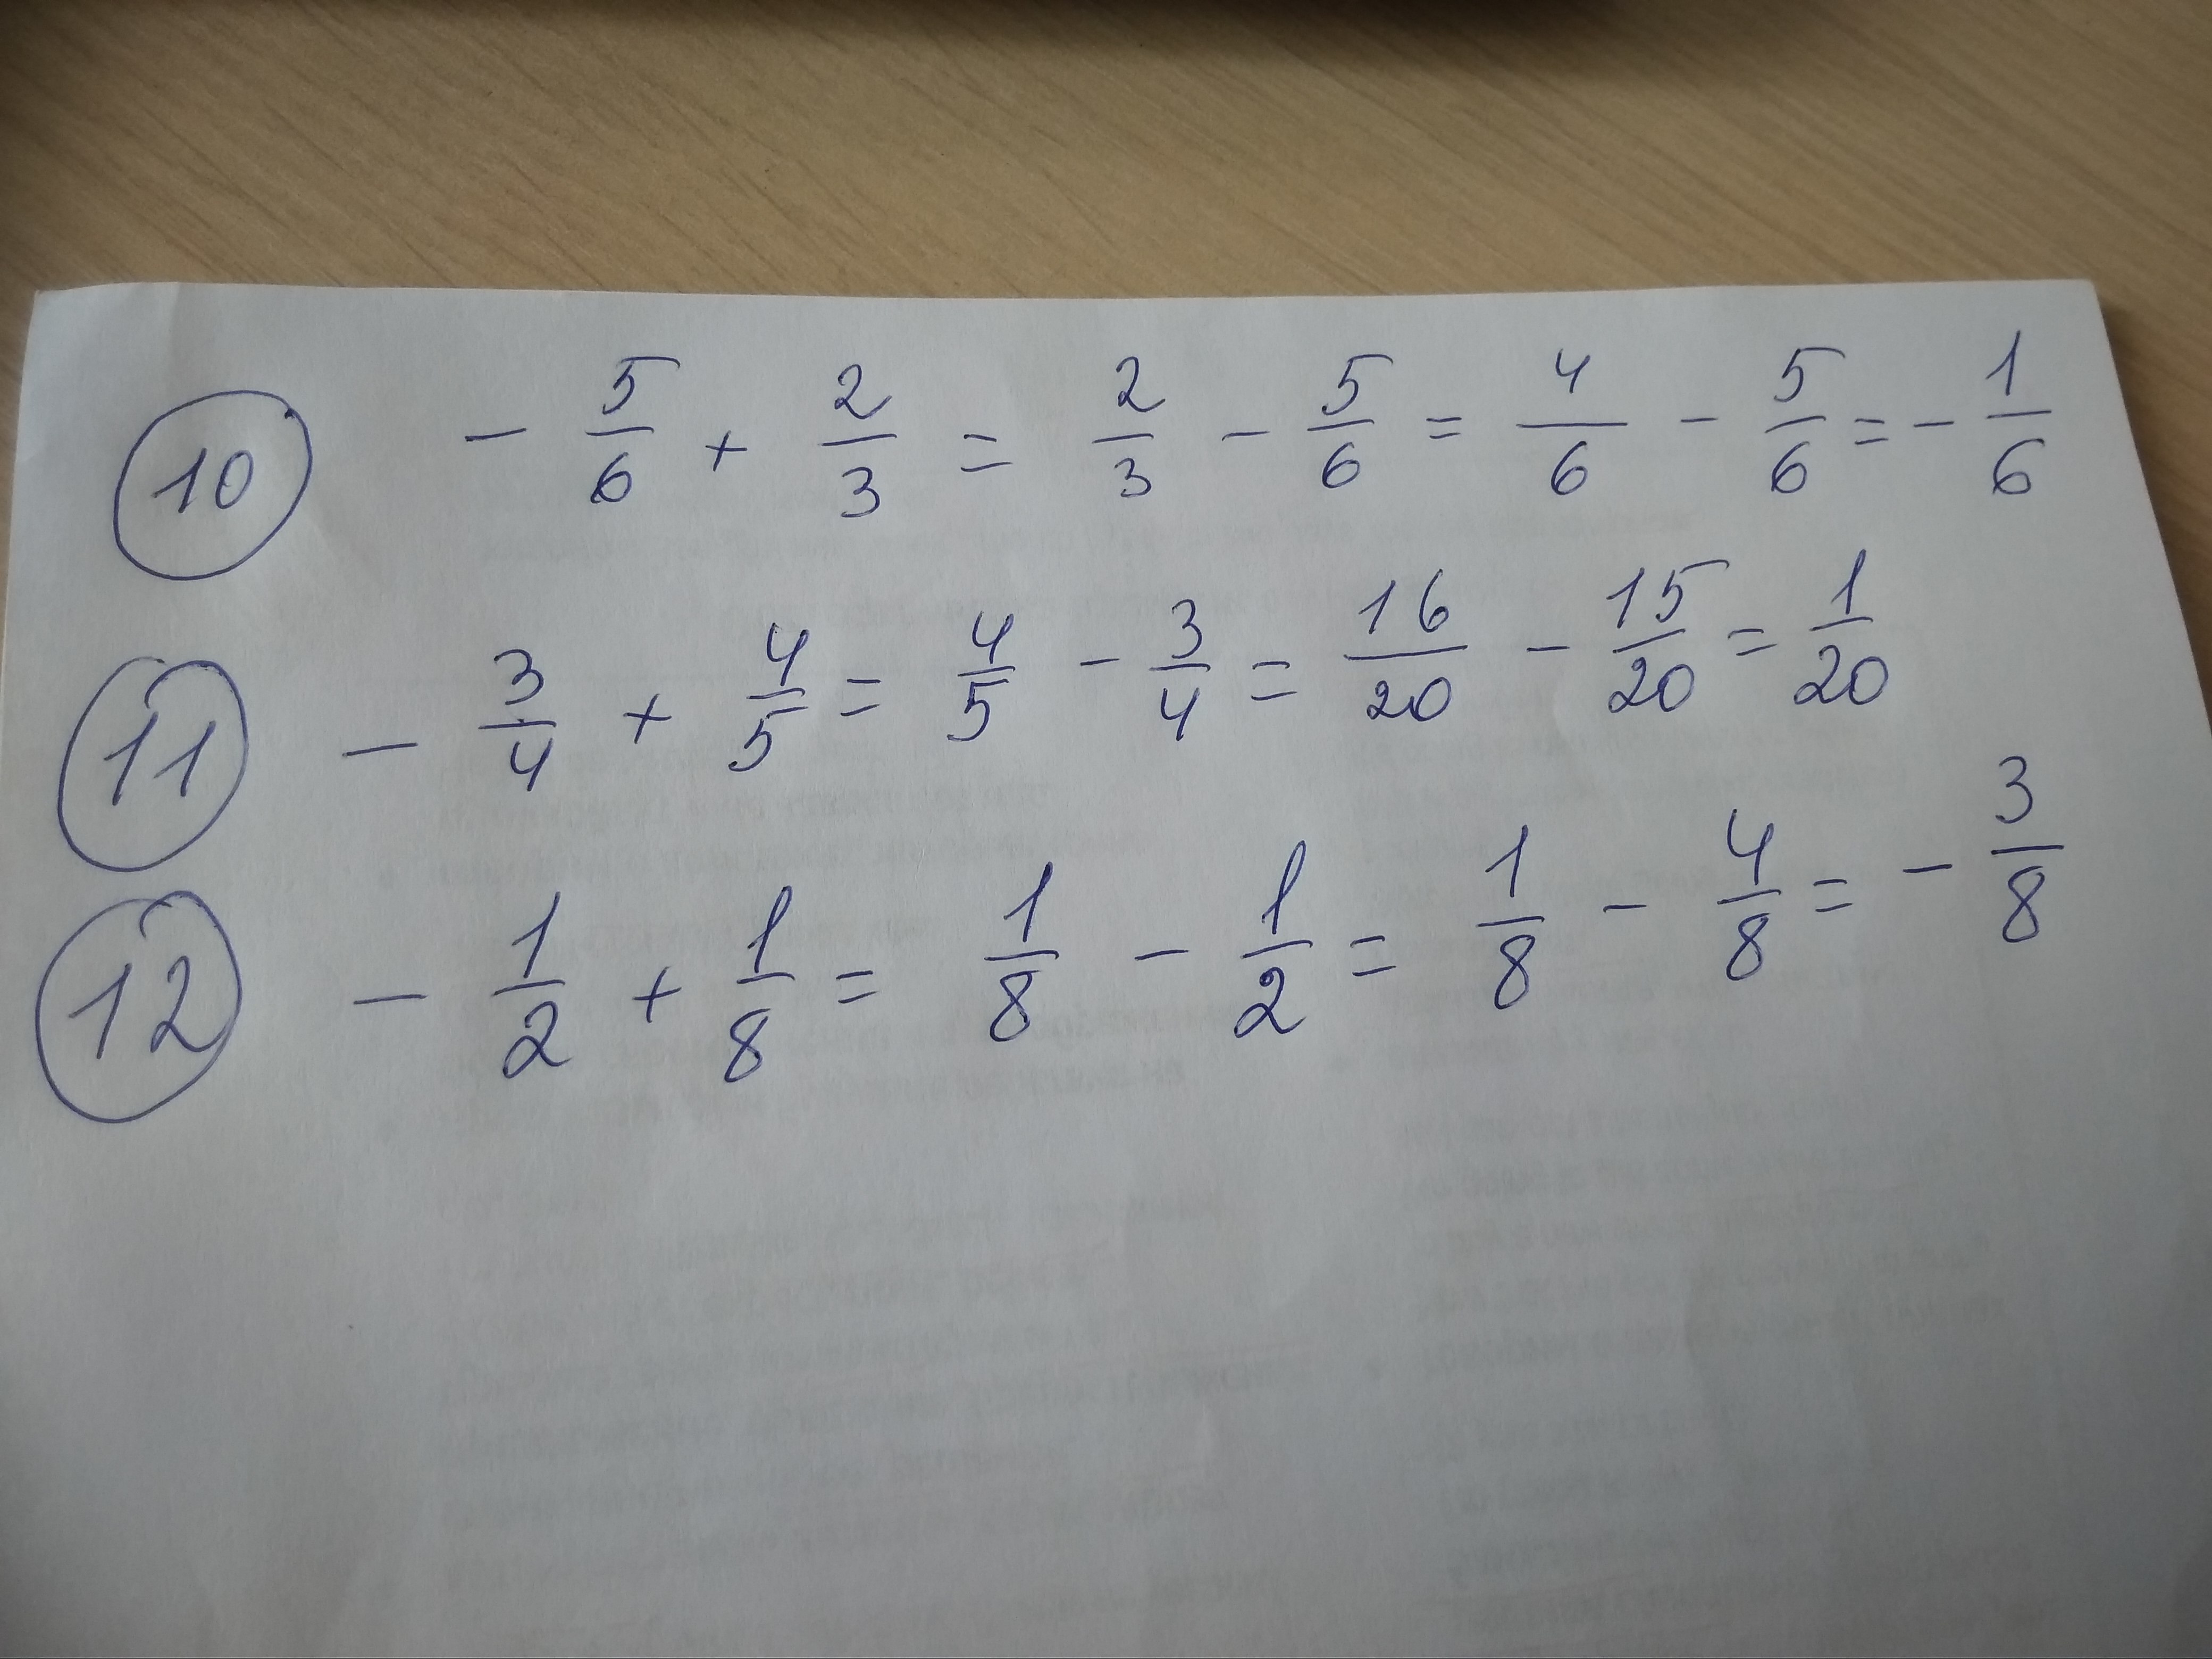 10 - 5/6 + 2/3 = 2/3 - 5/6 = 4/6 - 5/6 = - 1/6
11 - 3/4 + 4/5 = 4/5 - 3/4 = 16/20 - 15/20 = 1/20
12 - 1/2 + 1/8 = 1/8 - 1/2 = 1/8 - 4/8 = - 3/8